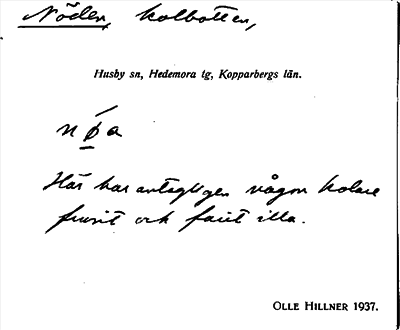 Nöden, kolbotten,
Husby sn, Hedemora tg, Kopparbergs län.
nǿa
Här har antagligen någon kolare
frusit och farit illa.
OLLE HILLNER 1937.